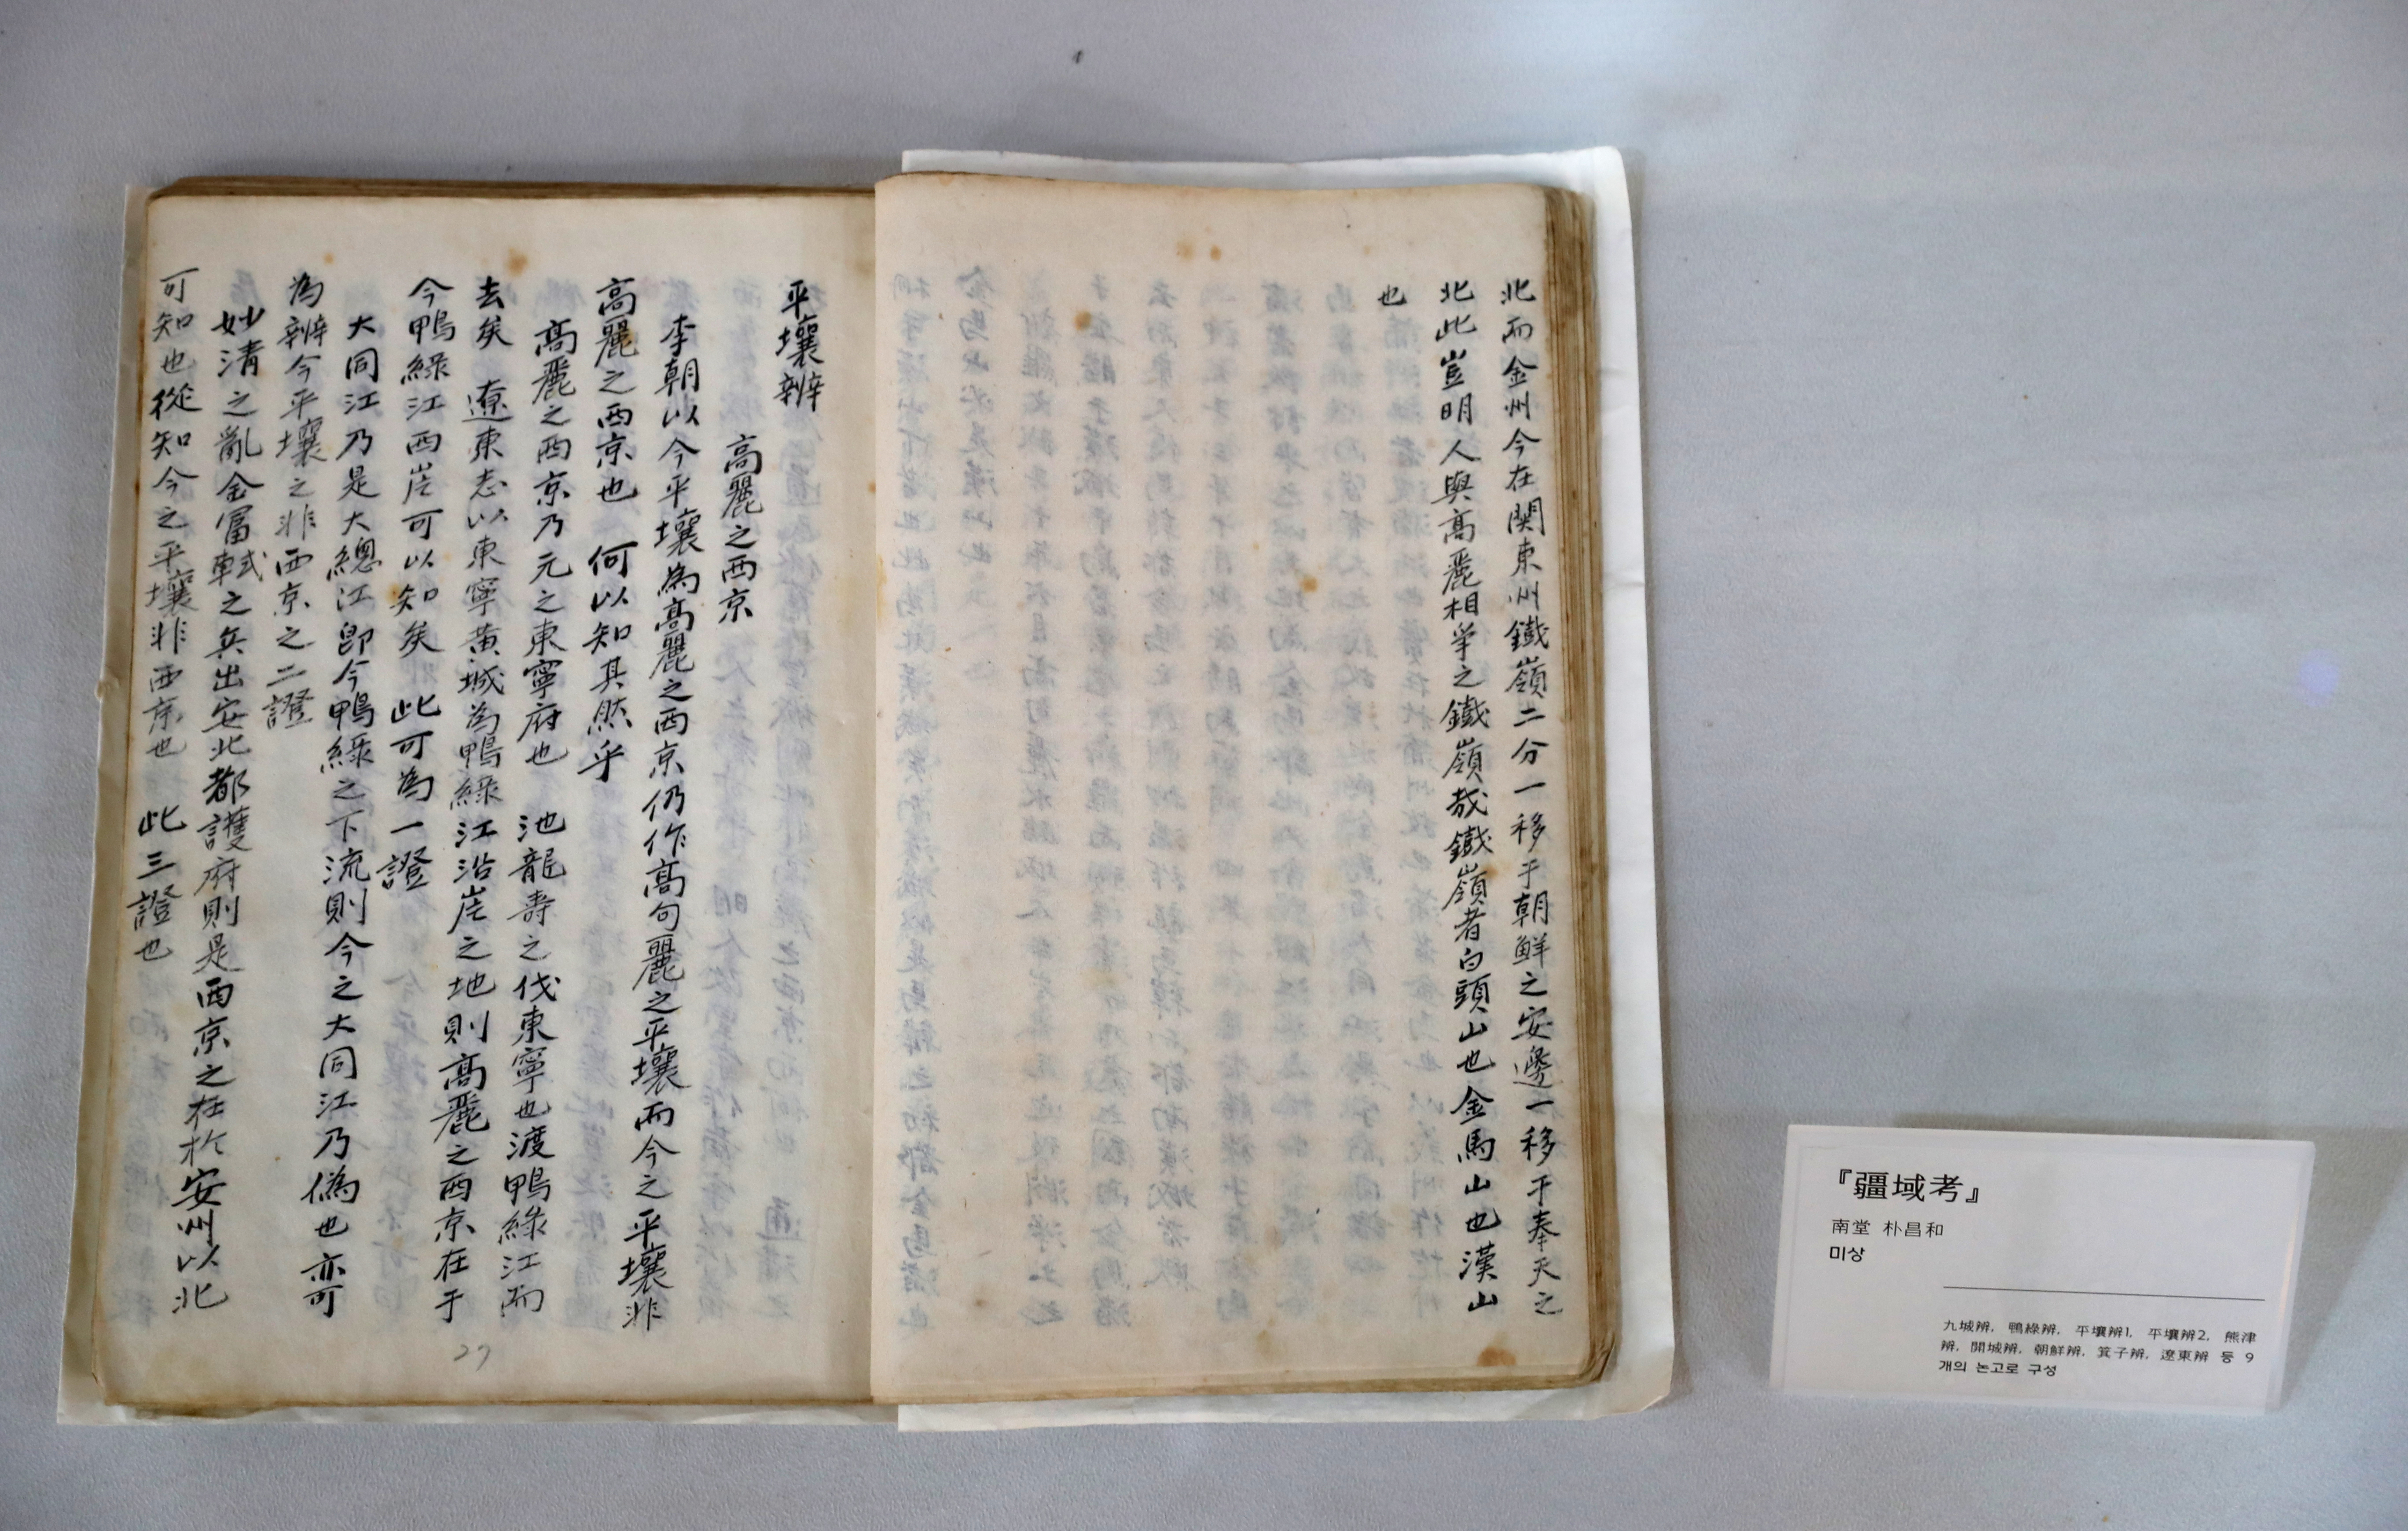 北而金州今在関東州鐵嶺二分一移于朝鮮之安邊一移于奉天之
北此豈明人與高麗相爭之鐵嶺哉鐵嶺者白頭山也金馬山也漢山
也
平壤辨
高麗之西京
李朝以今平壤為高麗之西京仍作高句麗之平壤而今之平壤非
高麗之西京也 何以知其然乎
高麗之西京乃元之東寧府也 池龍壽之伐東寧也渡鴨綠江而
去矣 遼東志以東寧黄城為鴨綠江沿崖之地則高麗之西京在于
今鴨綠江西崖可以知矣 此可為一證
大同江乃是大總江卽今鴨綠之下流則今之大同江乃偽也亦可
為辨今平壤之非西京之二證
妙清之亂金富軾之兵出安北都護府則是西京之在於安州以北
可知也從知今之平壤非西京也 此三證也
27
『疆域考』
南堂 朴昌和
미상
九城辨, 鴨綠辨, 平壤辨1, 平壤辨2, 熊津
辨, 開城辨, 朝鮮辨, 箕子辨, 遼東辨 등 9
개의 논고로 구성